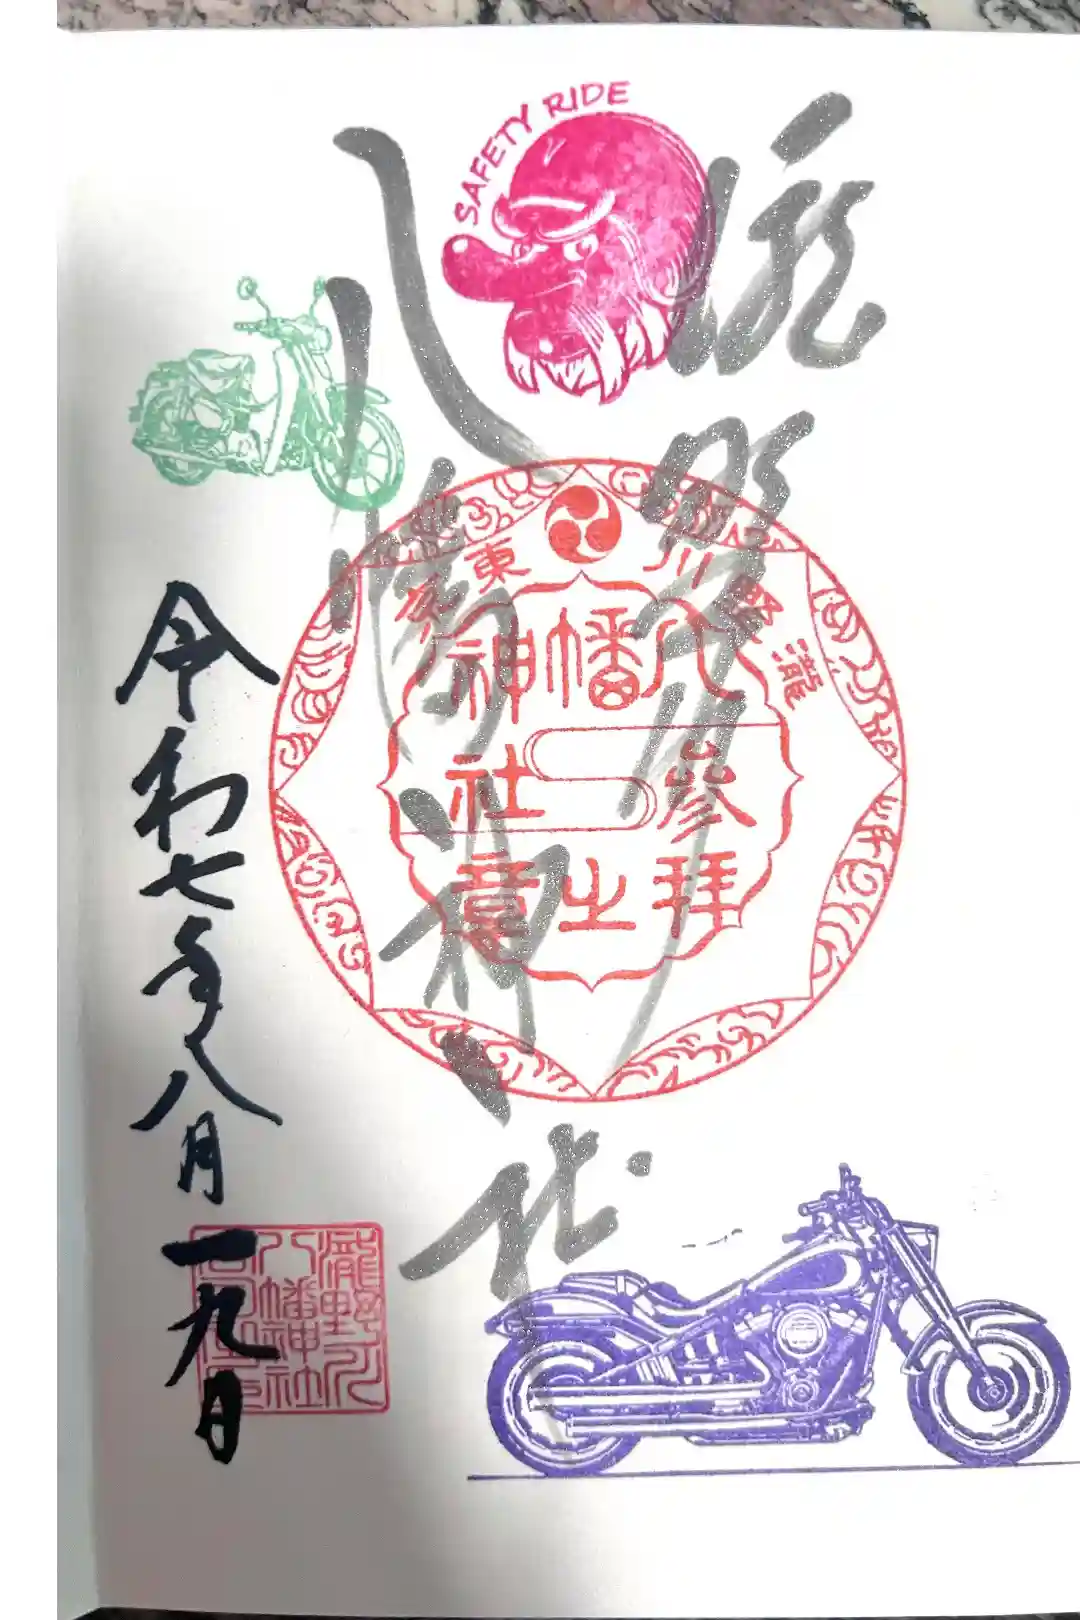 SAFETY RIDE
瀧野川
八幡神社
東京
瀧野川
八幡神社
参拝之
社意
令和七年八月一九日
瀧野川
八幡神社